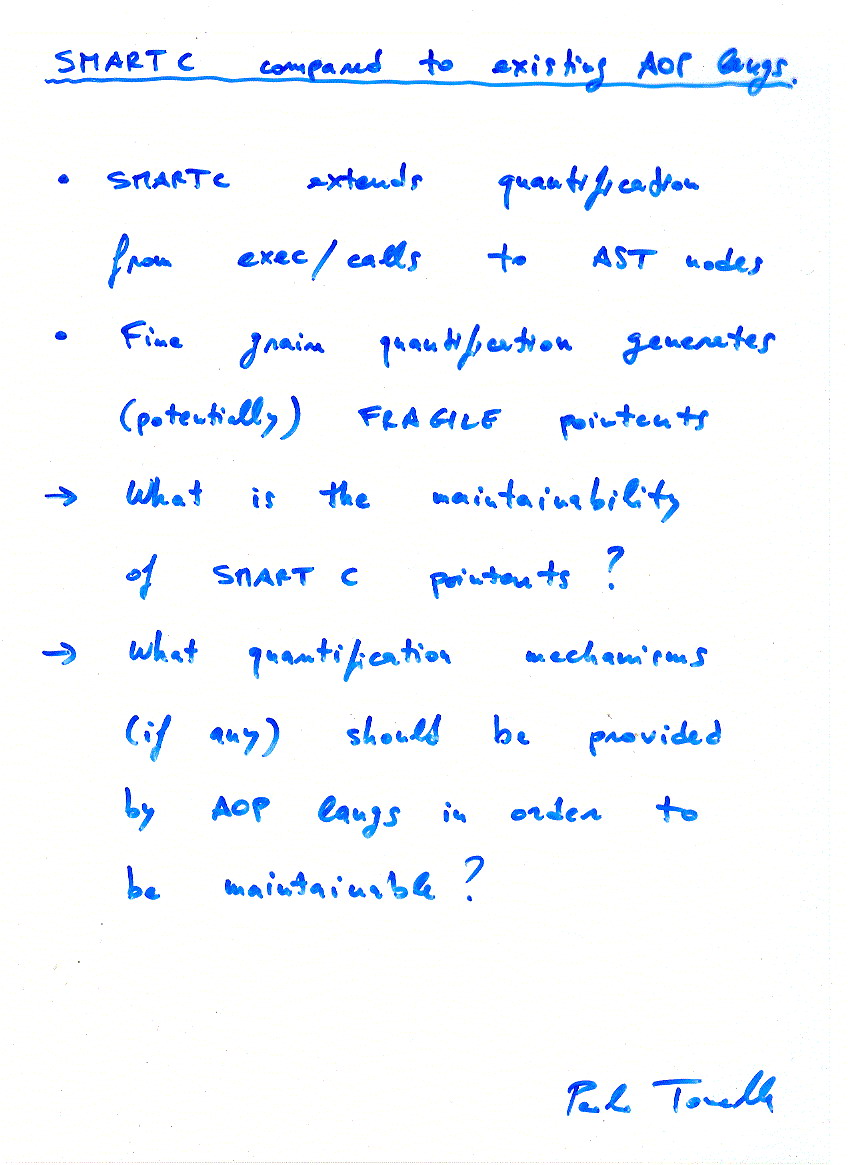 SMART C compared to existing AOP langs.
• SMARTC extends quantification
from exec/calls to AST nodes
• Fine grain quantification generates
(potentially) FRAGILE pointcuts
→ What is the maintainability
of SMART C pointcuts ?
→ What quantification mechanisms
(if any) should be provided
by AOP langs in order to
be maintainable ?